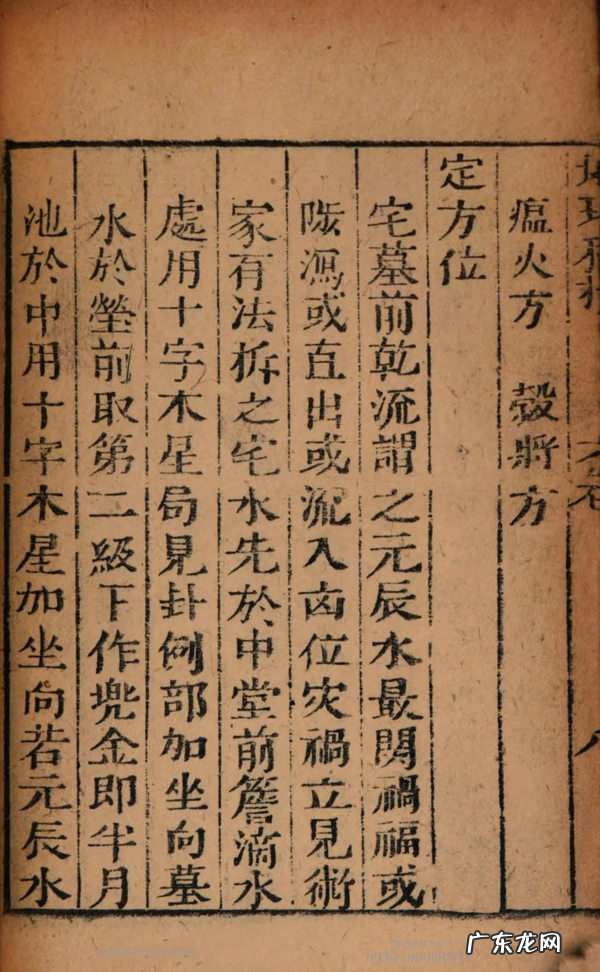 瘟火方　穀將方
定方位
宅墓前乾流謂之元辰水最関禍福或
陡瀉或直出或流入凶位灾禍立見術
家有法拆之宅水先於中堂前簷滴水
處用十字木星局見卦例部加坐向墓
水於塋前取第二級下作兠金即半月
池於中用十字木星加坐向若元辰水
广东龙网